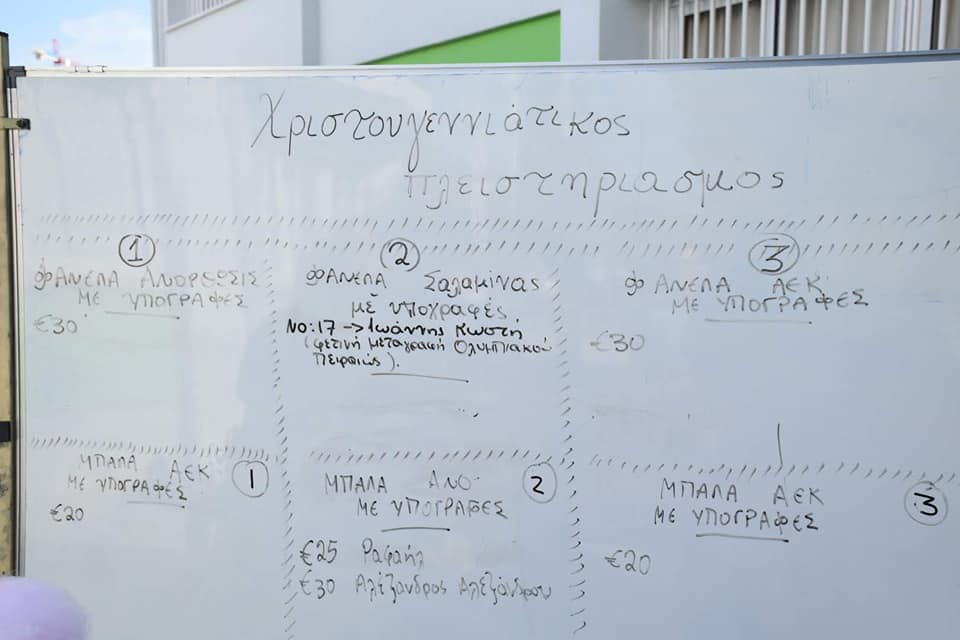 Χριστουγεννιάτικος
πλειστηριασμος
1
φΑΝΕΛΑ ΑΝΟΡΘΩΣΙΣ
ΜΕ ΥΠΟΓΡΑΦΕΣ
€30
2
φΑΝΕΛΑ Σαλαμίνας
μέ υπογραφές
Νο:17 -> Ιωάννης Κωστή
(φετινή μεταγραφή Ολυμπιακού
Πειραιώς).
3
φΑΝΕΛΑ ΑΕΚ
ΜΕ ΥΠΟΓΡΑΦΕΣ
€30
ΜΠΑΛΑ ΑΕΚ 1
ΜΕ ΥΠΟΓΡΑΦΕΣ
€20
ΜΠΑΛΑ ΑΝΟ. 2
ΜΕ ΥΠΟΓΡΑΦΕΣ
€25 Ραφαήλ
€30 Αλέξανδρος Αλεξάνδρου
ΜΠΑΛΑ ΑΕΚ 3
ΜΕ ΥΠΟΓΡΑΦΕΣ
€20